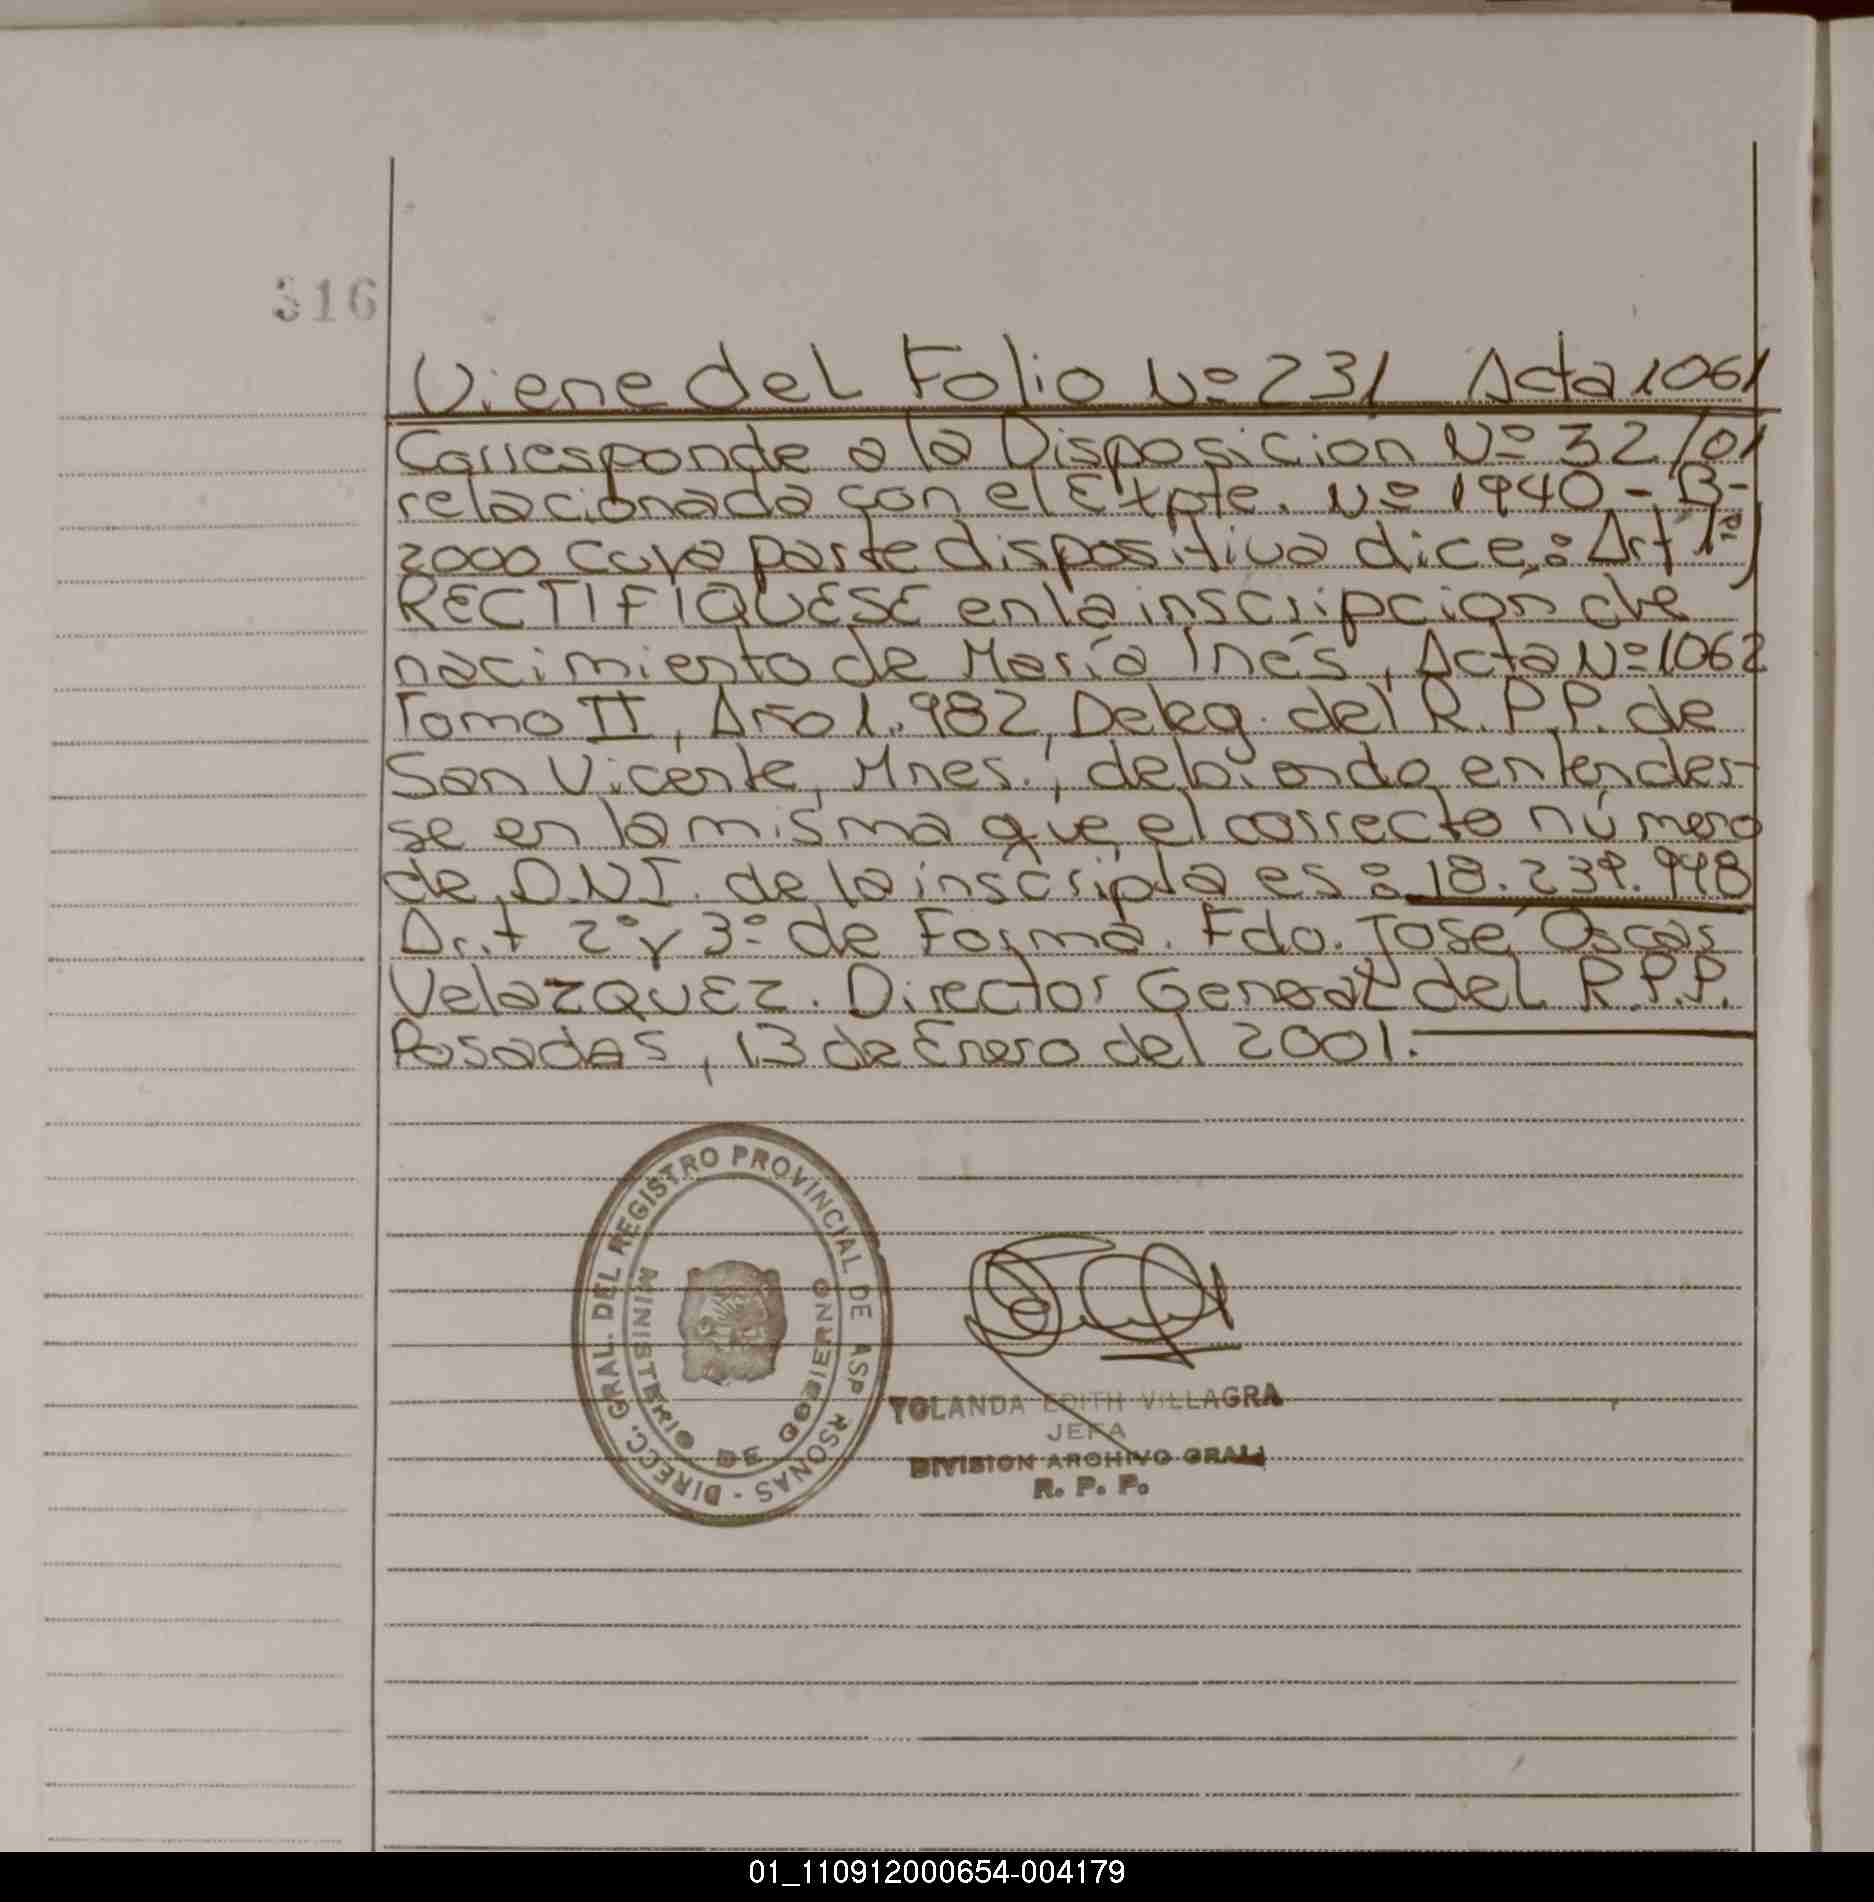 316
Viene del Folio Nº 231 Acta 1061
Corresponde a la Disposicion Nº 32/01
relacionada con el Expte. Nº 1940-B-
2000 cuya parte dispositiva dice: Art 1º)
RECTIFIQUESE en la inscripción de
nacimiento de María Inés, Acta Nº 1062
Tomo II, Año 1.982, Deleg. del R.P.P. de
San Vicente, Mnes., debiendo entender-
se en la misma que el correcto número
de D.N.I. de la inscripta es: 18.239.948
Art 2º y 3º de Forma. Fdo. José Oscar
Velazquez. Director General del R.P.P.
Posadas, 13 de Enero del 2001.
DIRECC. GRAL. DEL REGISTRO PROVINCIAL DE RSONAS -
MINISTERIO DE GOBIERNO
YOLANDA EDITH VILLAGRA
JEFA
DIVISION ARCHIVO GRAL
R. P. P.
01_110912000654-004179